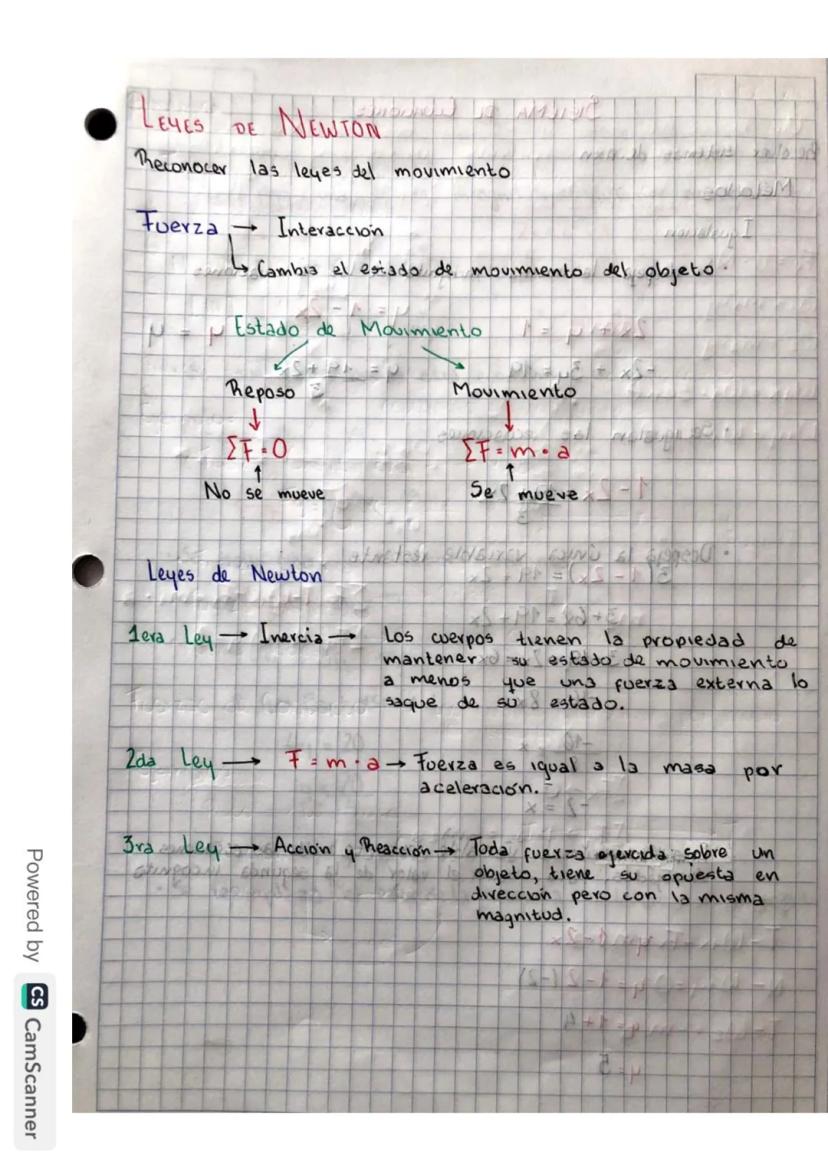 LEYES DE NEWTON
Reconocer las leyes del movimiento
Fuerza → Interacción
↳ Cambia el estado de movimiento del objeto.
Estado de Movimiento
Reposo Movimiento
ΣF = 0 ΣF = m · a
No se mueve Se mueve
Leyes de Newton
1era Ley → Inercia → Los cuerpos tienen la propiedad de
mantener su estado de movimiento
a menos que una fuerza externa lo
saque de su estado.
2da Ley → F = m · a → Fuerza es igual a la masa por
aceleración.
3ra Ley → Acción y Reacción → Toda fuerza ejercida sobre un
objeto, tiene su opuesta en
dirección pero con la misma
magnitud.
Powered by CS CamScanner